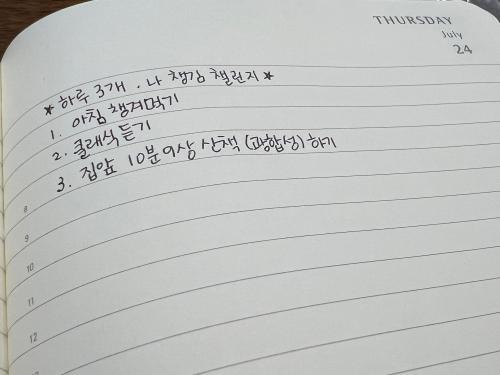 THURSDAY
July
24
* 하루 3개 · 나 챙김 챌린지 *
1. 아침 챙겨먹기
2. 클래식 듣기
3. 집앞 10분 이상 산책 (광합성) 하기
8
9
10
11
12